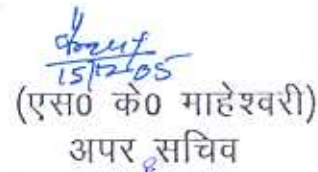 15/12/05
(एस0 के0 माहेश्वरी)
अपर सचिव